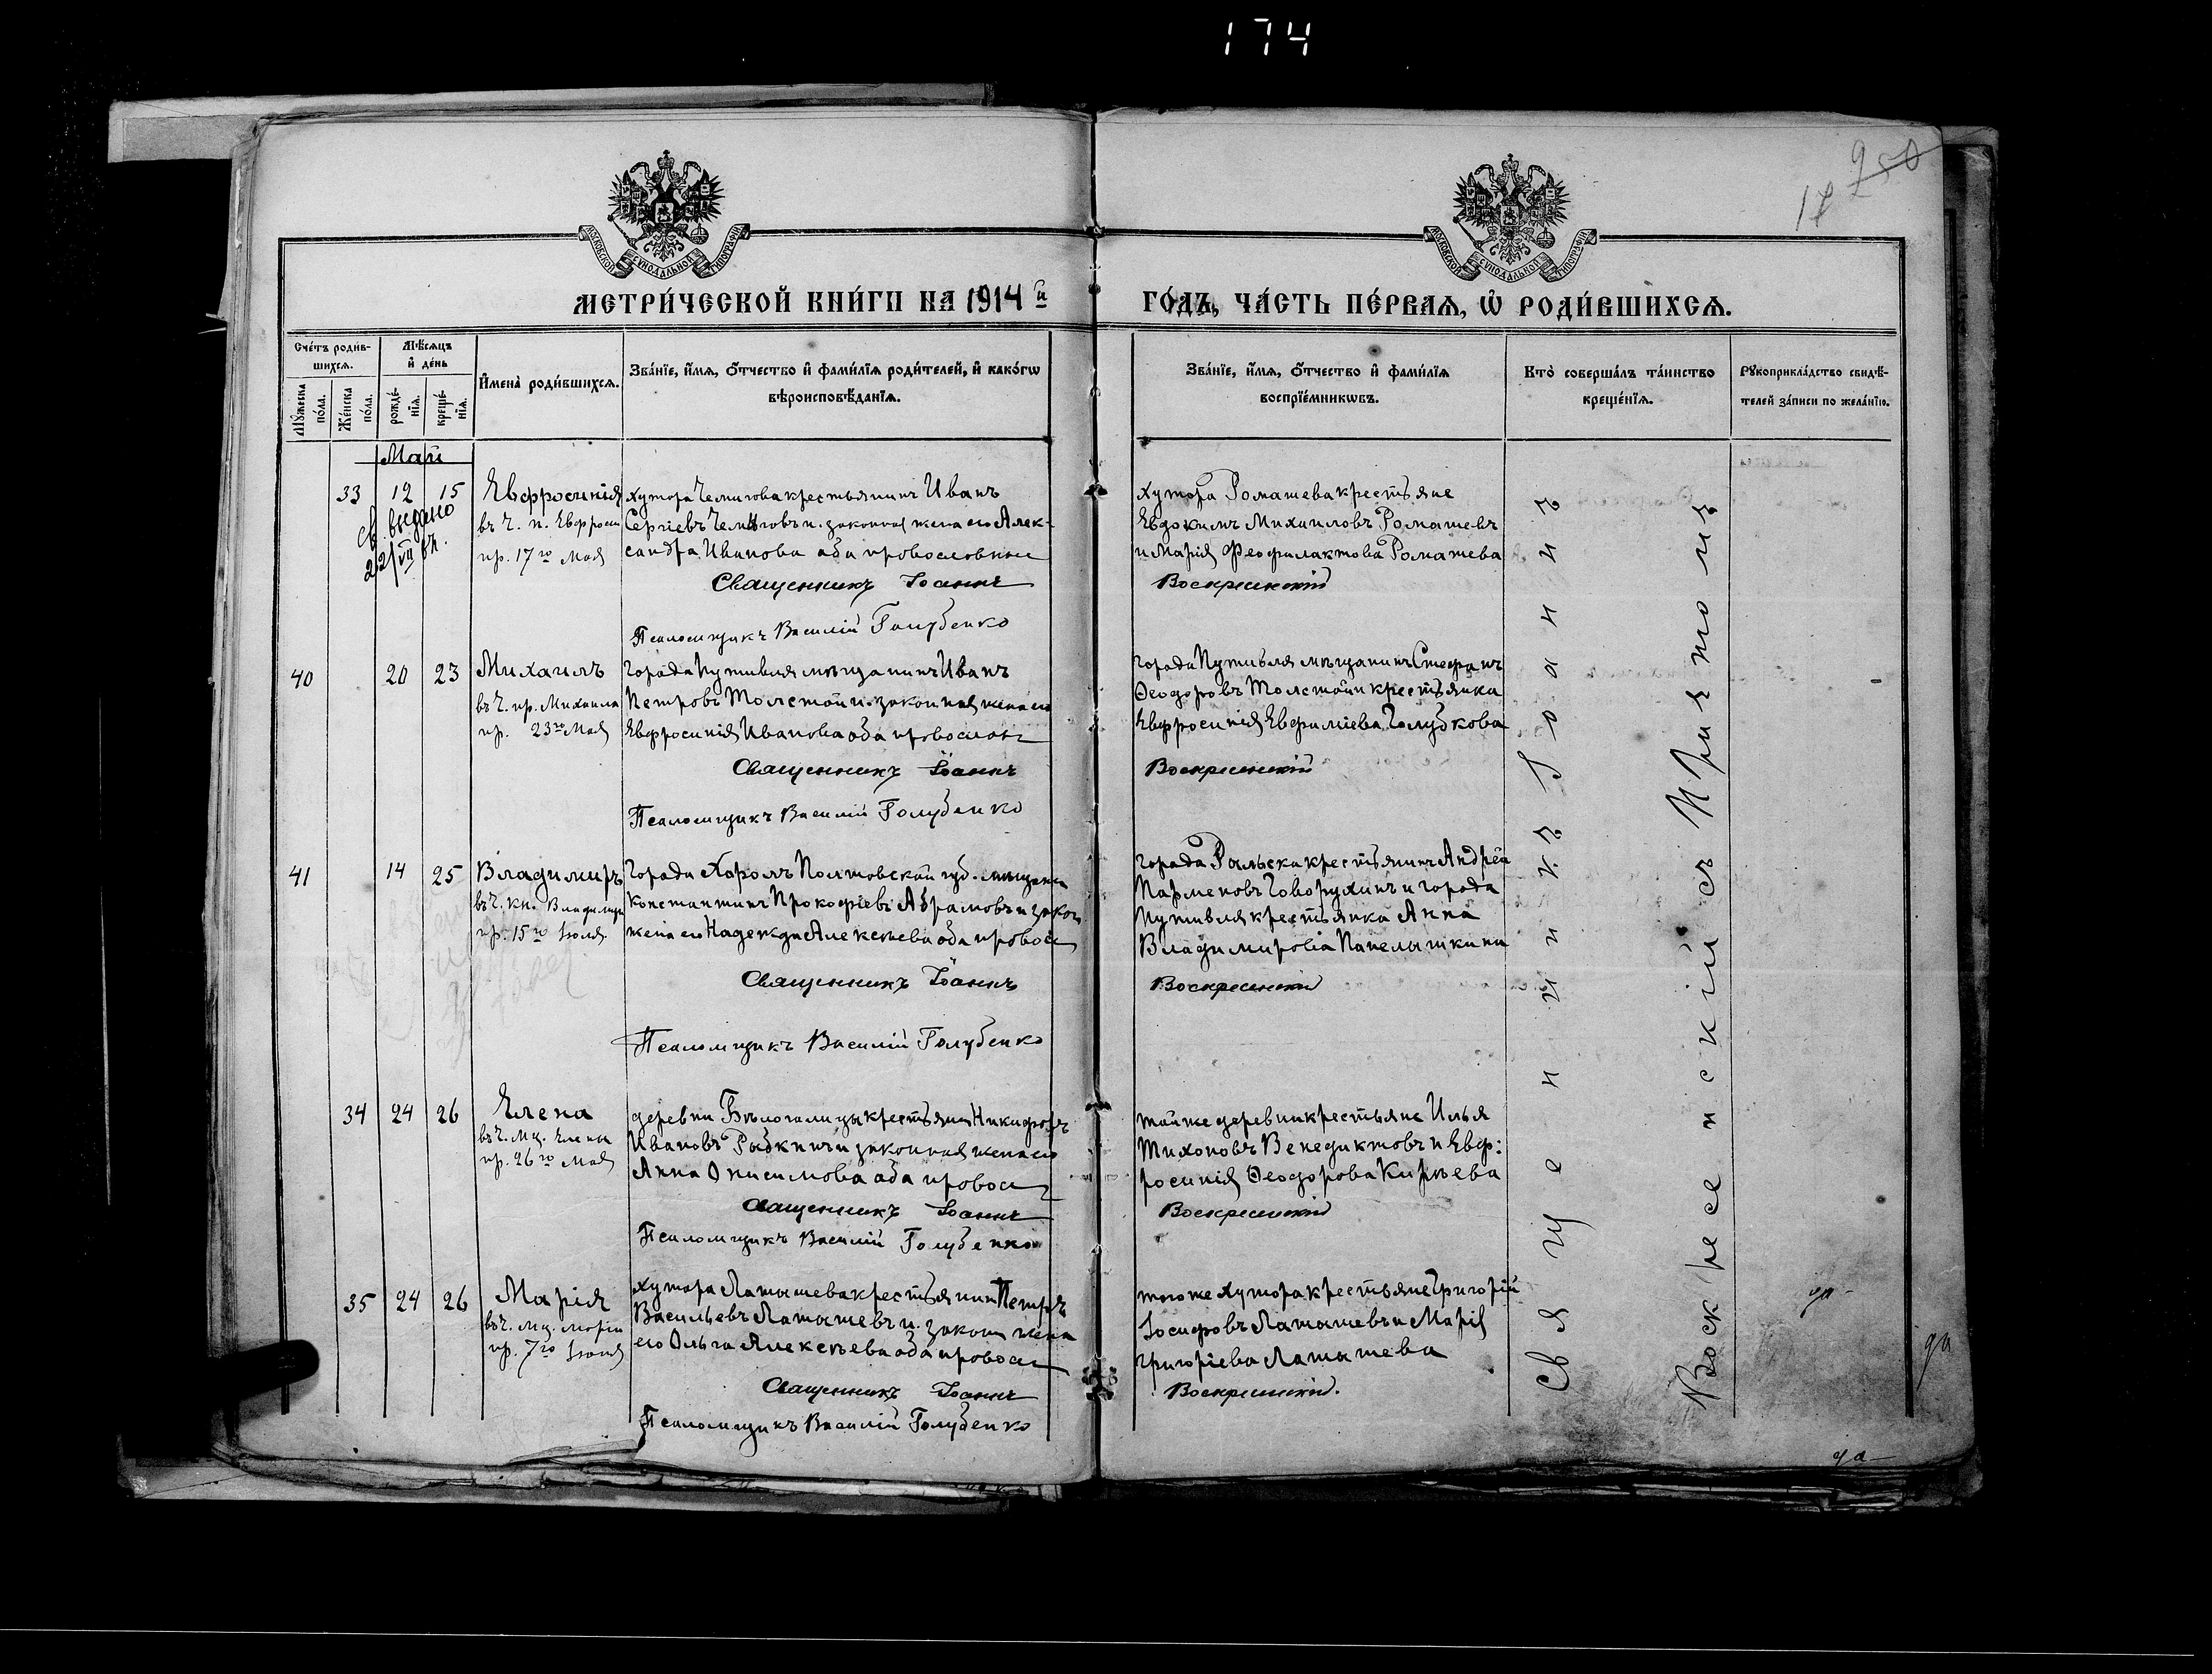 174
250
17
МОСКОВСКОЙ СѴНОДАЛЬНОЙ ТИПОГРАФІИ
МОСКОВСКОЙ СѴНОДАЛЬНОЙ ТИПОГРАФІИ
МЕТРИ́ЧЕСКОЙ КНИ́ГИ НА 1914й
ГО́ДЪ, ЧА́СТЬ ПЕ́РВАЯ, Ѿ РОДИ́ВШИХСЯ.
Сче́тъ роди́в-
шихся.
Мѣ́сяцъ
и҆ де́нь
Мꙋ́жеска
по́ла.
Же́нска
по́ла.
рожде́-
нїя.
креще́-
нїя.
И҆мена̀ роди́вшихся.
Зва́нїе, и҆́мя, ѻ҆́тчество и҆ фами́лїя роди́телей, и҆ како́гѡ
вѣроисповѣ́данїя.
Зва́нїе, и҆́мя, ѻ҆́тчество и҆ фами́лїя
воспрїе́мникѡвъ.
Кто̀ соверша́лъ та́инство
креще́нїя.
Рꙋкоприкла́дство свидѣ́-
телей за́писи по жела́нїю.
Май
33 12 15 Евфросинія
въ ч. п. Евфроси
пр. 17го Мая
св. выдано
22/VII
хутора Чемигова крестьянинъ Иванъ
Сергіевъ Чемиговъ и законная жена его Алек-
сандра Иванова оба провославны
Священникъ Іоаннъ
Псаломщикъ Василій Голубенко
хутора Ромашева крестьяне
Евдокимъ Михаиловъ Ромашевъ
и Марія Феофилактова Ромашева
Воскресенскій
40 20 23 Михаилъ
въ ч. пр. Михаила
пр. 23го Мая
города Путивля мѣщанинъ Иванъ
Петровъ Толстой и законная жена его
Евфросинія Иванова оба правосл
Священникъ Іоаннъ
Псаломщикъ Василій Голубенко
города Путивля мѣщанинъ Стефанъ
Ѳеодоровъ Толстой и крестьянка
Евфросинія Евфиміева Голубкова
Воскресенскій
41 14 25 Владимиръ
въ ч. кн. Владимира
пр. 15го Іюля
города Хоролъ Полтовской губ. мѣщанин
Константинъ Прокофіевъ Абрамовъ и закон
жена его Надежда Алексѣева оба провосл
Священникъ Іоаннъ
Псаломщикъ Василій Голубенко
города Рыльска крестьянинъ Андрей
Парменовъ Говорухинъ и города
Путивля крестьянка Анна
Владимирова
Воскресенскій
34 24 26 Елена
въ ч. мц. Елены
пр. 26го Мая
деревни Бѣлогалицы крестьянин Никифоръ
Ивановъ Рыбкинъ и законная жена его
Анна Онисимова оба провосл
Священникъ Іоаннъ
Псаломщикъ Василій Голубенко
той же деревни крестьяне Илья
Тихоновъ Венедиктовъ и Евф:
росинія Ѳеодорова Кирѣева
Воскресенскій
35 24 26 Марія
въ ч. мц. Маріи
пр. 7го Іюня
хутора Латышева крестьянин Петръ
Васильевъ Латышевъ и закон жена
его Ольга Алексѣева оба провосл
Священникъ Іоаннъ
Псаломщикъ Василій Голубенко
того же хутора крестьяне Григорій
Іосифовъ Латышевъ и Марія
Григоріева Латышева
Воскресенскій.
Священникъ Іоаннъ
Воскресенскій съ
да
да
да